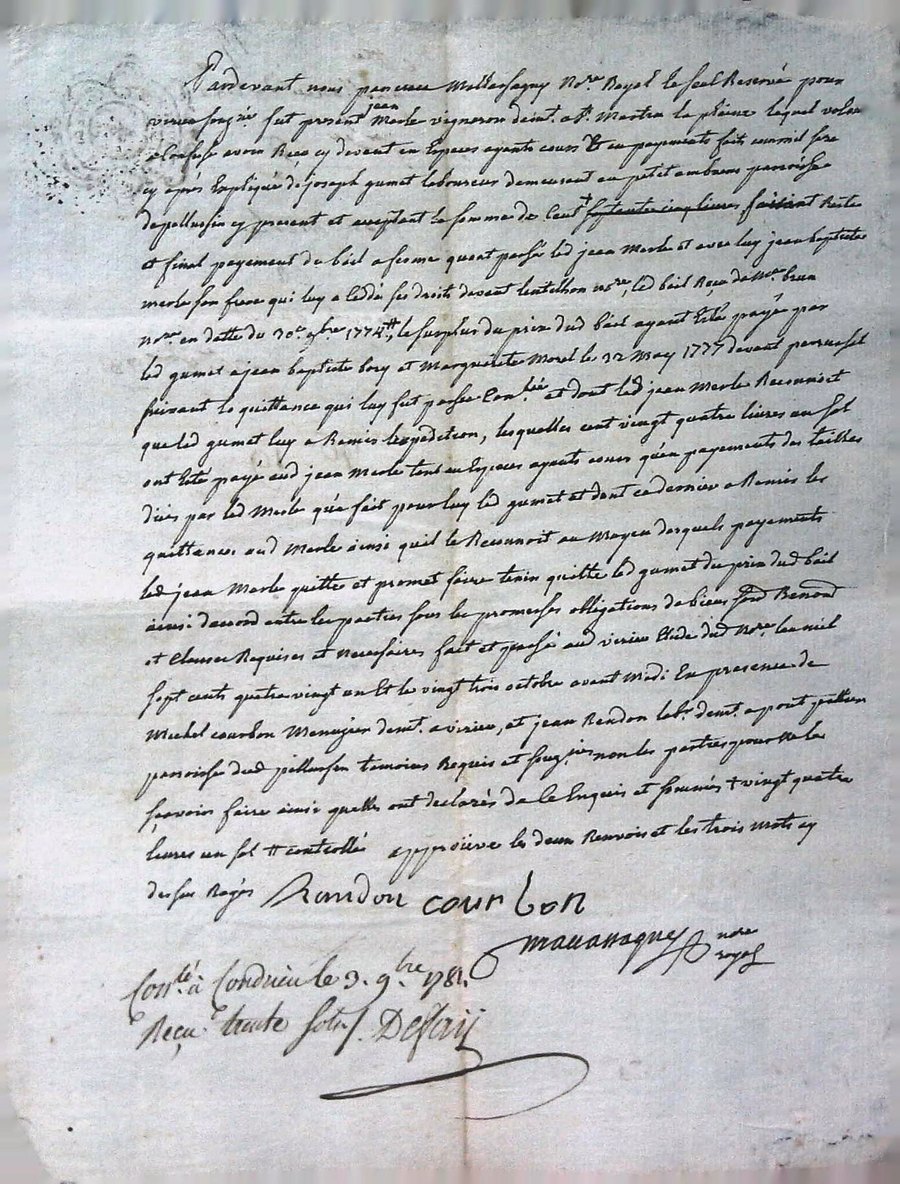 Pardevant nous Mottassagny No.re Royal le seel Reservé pour
virieu souz.né fut present jean Merle vigneron demt. a St. Martin la plaine lequel volon
a Confessé avoir Recu cy devant en Especes ayants cours & en payements faits comme sera
cy après Expliqué de joseph gumet laboureur demeurant au petit embuen parroisse
de pellussin cy present et acceptant la somme de Cent + septante cinq livres faisant Reste
et final payement du bail a ferme qu'ont passé led jean Merle et avec luy jean baptiste
merle son frere qui luy a cédé ses droits devant lentilhon no.re, led bail Reçu de Me. brun
no.re en datte du 30e. 9bre. 1774 #, le surplus du prix dud bail ayant Eté payé par
led gumet a jean baptiste bory et Marguerite Morel le 22 May 1777 devant
suivant la quittance qui luy fut passée Con.lée et dont led jean Merle Reconnoit
que led gumet luy a Remis lexpedition, lesquelles cent vingt quatre livres un sol
ont Eté payé aud jean Merle tant en Especes ayants cours qu'en payements des tailles
dües par led Merle qu'a fait pour luy led gumet et dont ce dernier a Remis les
quittances aud Merle ainsi quil le Reconnoit au Moyen desquels payements
led jean Merle quitte et promet faire tenir quitte led gumet du prix dud bail
ainsi daccord entre les parties sous les promesses obligations de biens
et Clauses Requises et Necessaires fait et passé aud virieu Etude dud No.re lan mil
sept cents quatre vingt un Et le vingt trois octobre avant Midi En presence de
Michel courbon Menuisier demt. a virieu, et jean Rendon labr. demt. a pont
parroisse dud pellussin temoins Requis et souz.nés non les parties pour ne le
sçavoir faire ainsi quelles ont declarés de ce Enquis et sommés + vingt quatre
livres un sol # controllé approuvé les deux Renvois et les trois mots cy
dessus Rayés Randon courbon
Mottassagny no.re
royal
Con.lé à Condrieu le 3. 9bre 1781.
Reçu trente sols /. Desfary